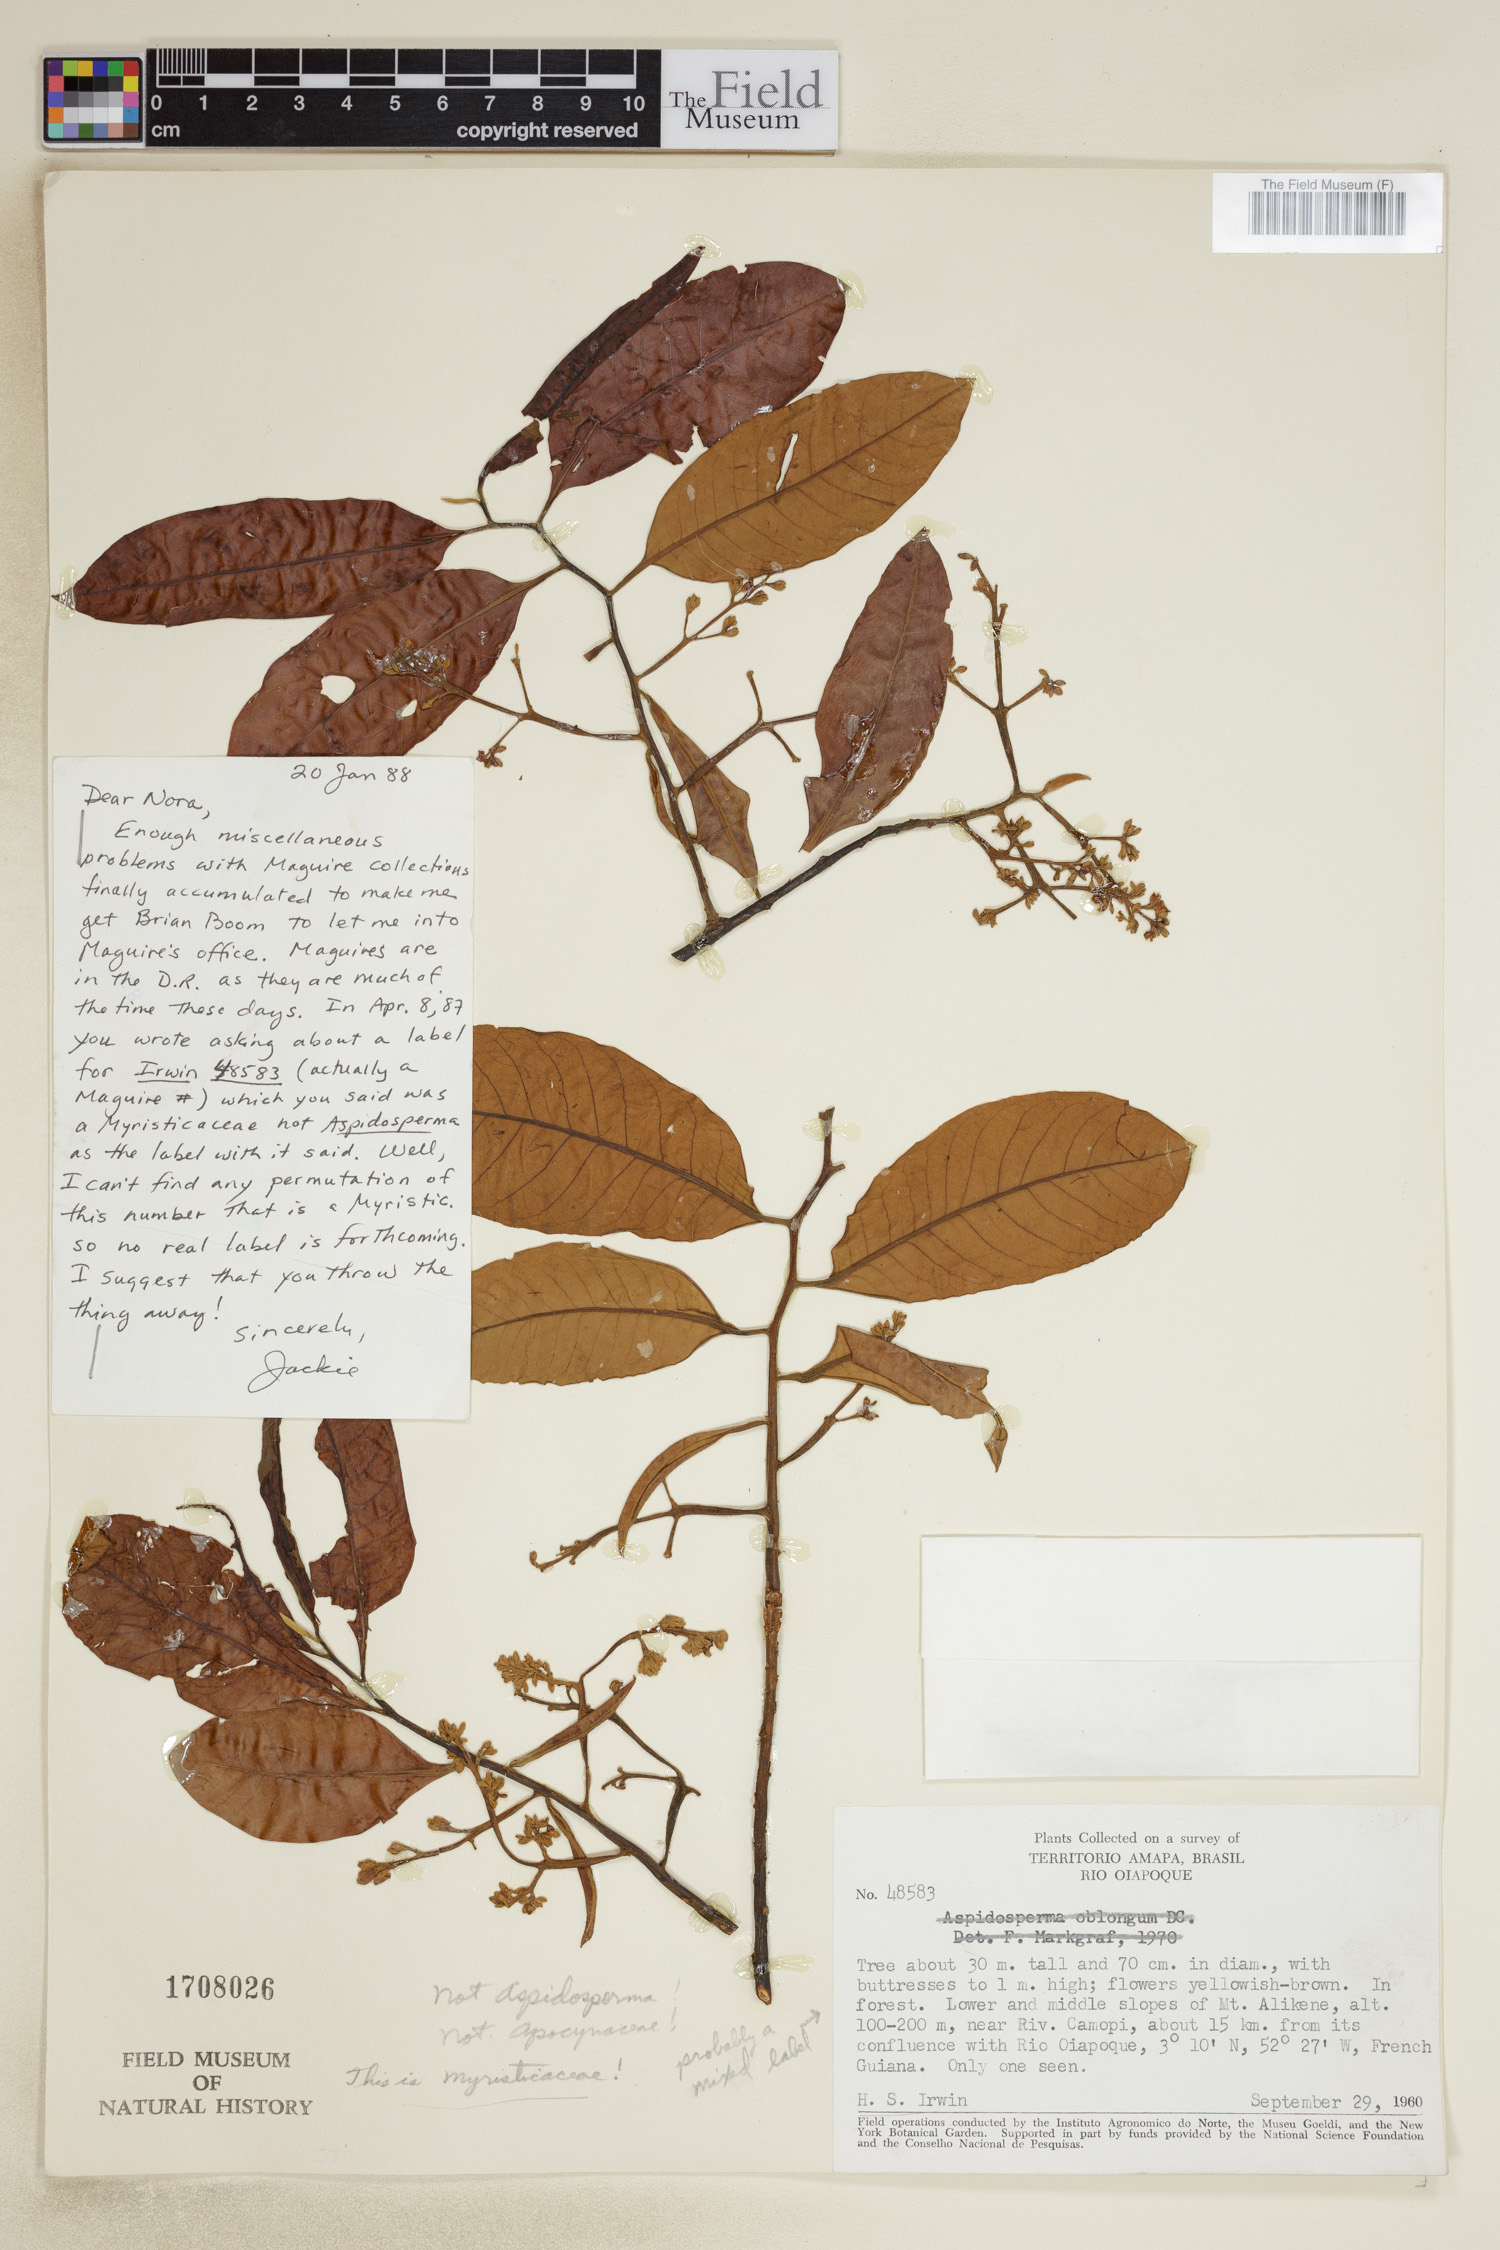 0 1 2 3 4 5 6 7 8 9 10
cm
copyright reserved
The Field
Museum
The Field Museum (F)
20 Jan 88
Dear Nora,
Enough miscellaneous
problems with Maguire collections
finally accumulated to make me
get Brian Boom to let me into
Maguire's office. Maguires are
in the D.R. as they are much of
the time these days. In Apr. 8, 87
you wrote asking about a label
for Irwin 48583 (actually a
Maguire #) which you said was
a Myristicaceae not Aspidosperma
as the label with it said. Well,
I can't find any permutation of
this number that is a Myristic.
so no real label is forthcoming.
I suggest that you throw the
thing away!
Sincerely,
Jackie
Plants Collected on a survey of
TERRITORIO AMAPA, BRASIL
RIO OIAPOQUE
No. 48583
Aspidosperma oblongum DC.
Det. F. Markgraf, 1970
Tree about 30 m. tall and 70 cm. in diam., with
buttresses to 1 m. high; flowers yellowish-brown. In
forest. Lower and middle slopes of Mt. Alikene, alt.
100-200 m, near Riv. Camopi, about 15 km. from its
confluence with Rio Oiapoque, 3° 10' N, 52° 27' W, French
Guiana. Only one seen.
H. S. Irwin September 29, 1960
Field operations conducted by the Instituto Agronomico do Norte, the Museu Goeldi, and the New
York Botanical Garden. Supported in part by funds provided by the National Science Foundation
and the Conselho Nacional de Pesquisas.
1708026
FIELD MUSEUM
OF
NATURAL HISTORY
Not Aspidosperma!
Not Apocynaceae!
This is Myristicaceae!
probably a
mixed label